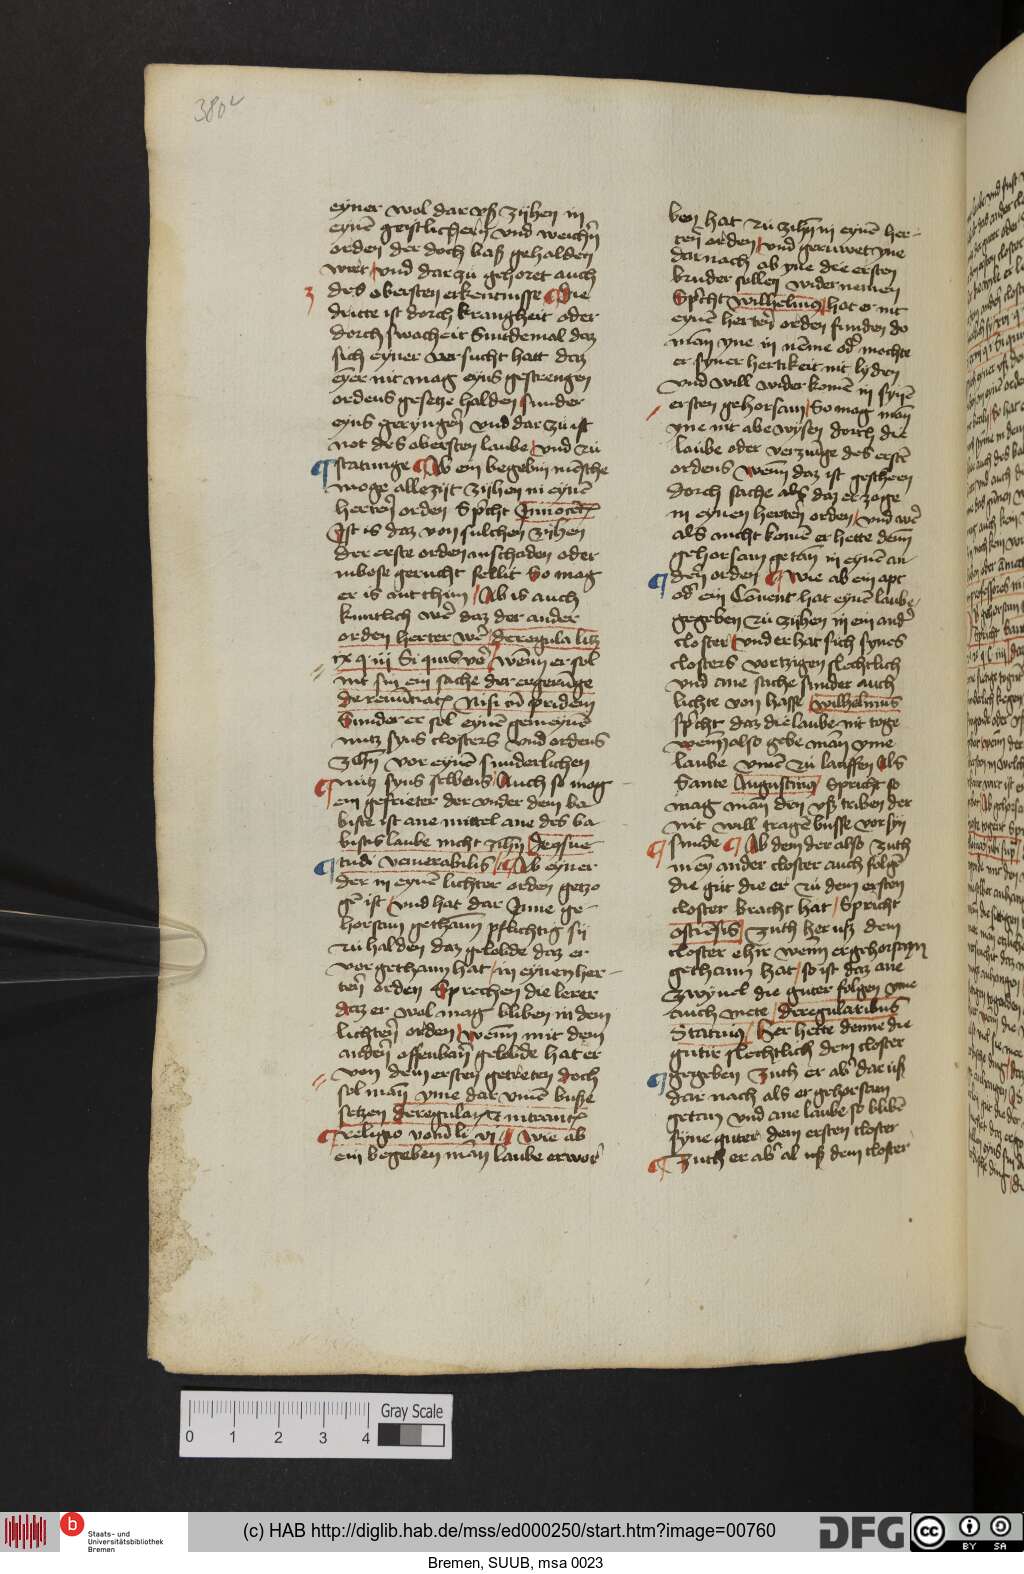 380v
eyner wol dar vß zyhen in
eynē geistlichern vnd weichn̄
orden der doch baß gehalden
wirt vnd darzu gehoret auch
3 des obersten erkentnisse ¶ Die
dritte ist dorch krangheit oder
dorch swacheit Sintdemal daz
sich eyner versucht hatt daz
eyner nit mag eyns gestrengen
ordens gesetze halden sunder
eyns geryngern̄ vnd dar zu ist
not des obersten laube vnd zu
¶ statunge ¶ Ab ein begebin mēsche
moge allezijt zyhen in eynē
herten̄ orden Spricht Innocēt
Ist is daz von sulchen zyhen
der erste orden anschaden oder
inbose gerucht fellit So mag
er is nit thun / Ab is auch
kuntlich wer daz der ander
orden herter wer / de regula litz
ix q iij Si quis vero wenn er sol
nit sin ein sache der ergerunge
de renūciatione Nisi cū pridem
Sunder er sol eynē gemeynē
nutz syns closters vnd ordens
zihn vor eynē sunderlichen
¶ nutz syns selbens Auch so mag
ein gefrieter der vnder dem ba
biste ist ane mittel ane des ba
bistis laube nicht zihn de cōsue
¶ tudi venerabilis / ¶ Ab eyner
der in eynē lichter orden getzo
gē ist vnd hat dar Inne ge
horsam gethann pflichtig sij
zu halden daz gelobde daz er
vorgethann hat in eynen her
ten̄ orden Sprechen die lerer
daz er wol mag bliben in dem
lichten̄ orden wenn mit dem
andern̄ offenbarn̄ gelobde hat er
von dem ersten getreten doch
sol man yme dar vmē buße
setzen de regularibus et intrantz
¶ religio vonū li vi ¶ Wie ab
ein begeben man laube erwor
ben hat zu zihn in eynē her
ten orden vnd geruwet yne
darnach ab yne die ersten
bruder sollen widernemen
Spricht wilhelmus hat er nit
eynē herten̄ orden funden do
man yne in neme oder mochte
er syner hertikeit nit lyden
vnd will wider komē in synē
ersten gehorsam So mag man
yne nit abewysen dorch die
laube oder verzunge des erstē
ordens wenn daz ist gescheen
dorch sache als daz er zoge
in eynen herten orden vnd wer
als nicht komē er hette denn
gehorsam getan in eynē an
¶ dern̄ orden ¶ Wie ab ein apt
oder ein Conuent hat eynē laube
gegeben zu zyhen in ein ander
closter vnd er hat sich synes
closters vortzigen slechtlich
vnd ane sache sunder auch
lichte von hasse wilhelmus
spricht daz die laube nit toge
wenn also gebe man yme
laube vmē zu lauffen Als
Sante Augustinus spricht so
mag man den vß triben der
nit will tragē busse vor syn
¶ sunde ¶ Ab dem der also zuth
in eyn ander closter auch folgē
die gut die er zu dem ersten
closter bracht hat Spricht
ostiēsis zuth her uß dem
closter ehir wenn er gehorsam
gethann hat so ist daz ane
zwyuel die guter folgen yme
auch mete de regularibus
Statuimus / Her hette denne die
gutir slechtlich dem closter
¶ gegeben Zuth er aber dar uß
dar nach als er gehorsam
getan vnd ane laube so blibē
syne guter dem ersten closter
¶ Zuth er aber al uß dem closter
0 1 2 3 4 Gray Scale
b Staats- und
Universitätsbibliothek
Bremen
(c) HAB http://diglib.hab.de/mss/ed000250/start.htm?image=00760
DFG cc BY SA
Bremen, SUUB, msa 0023